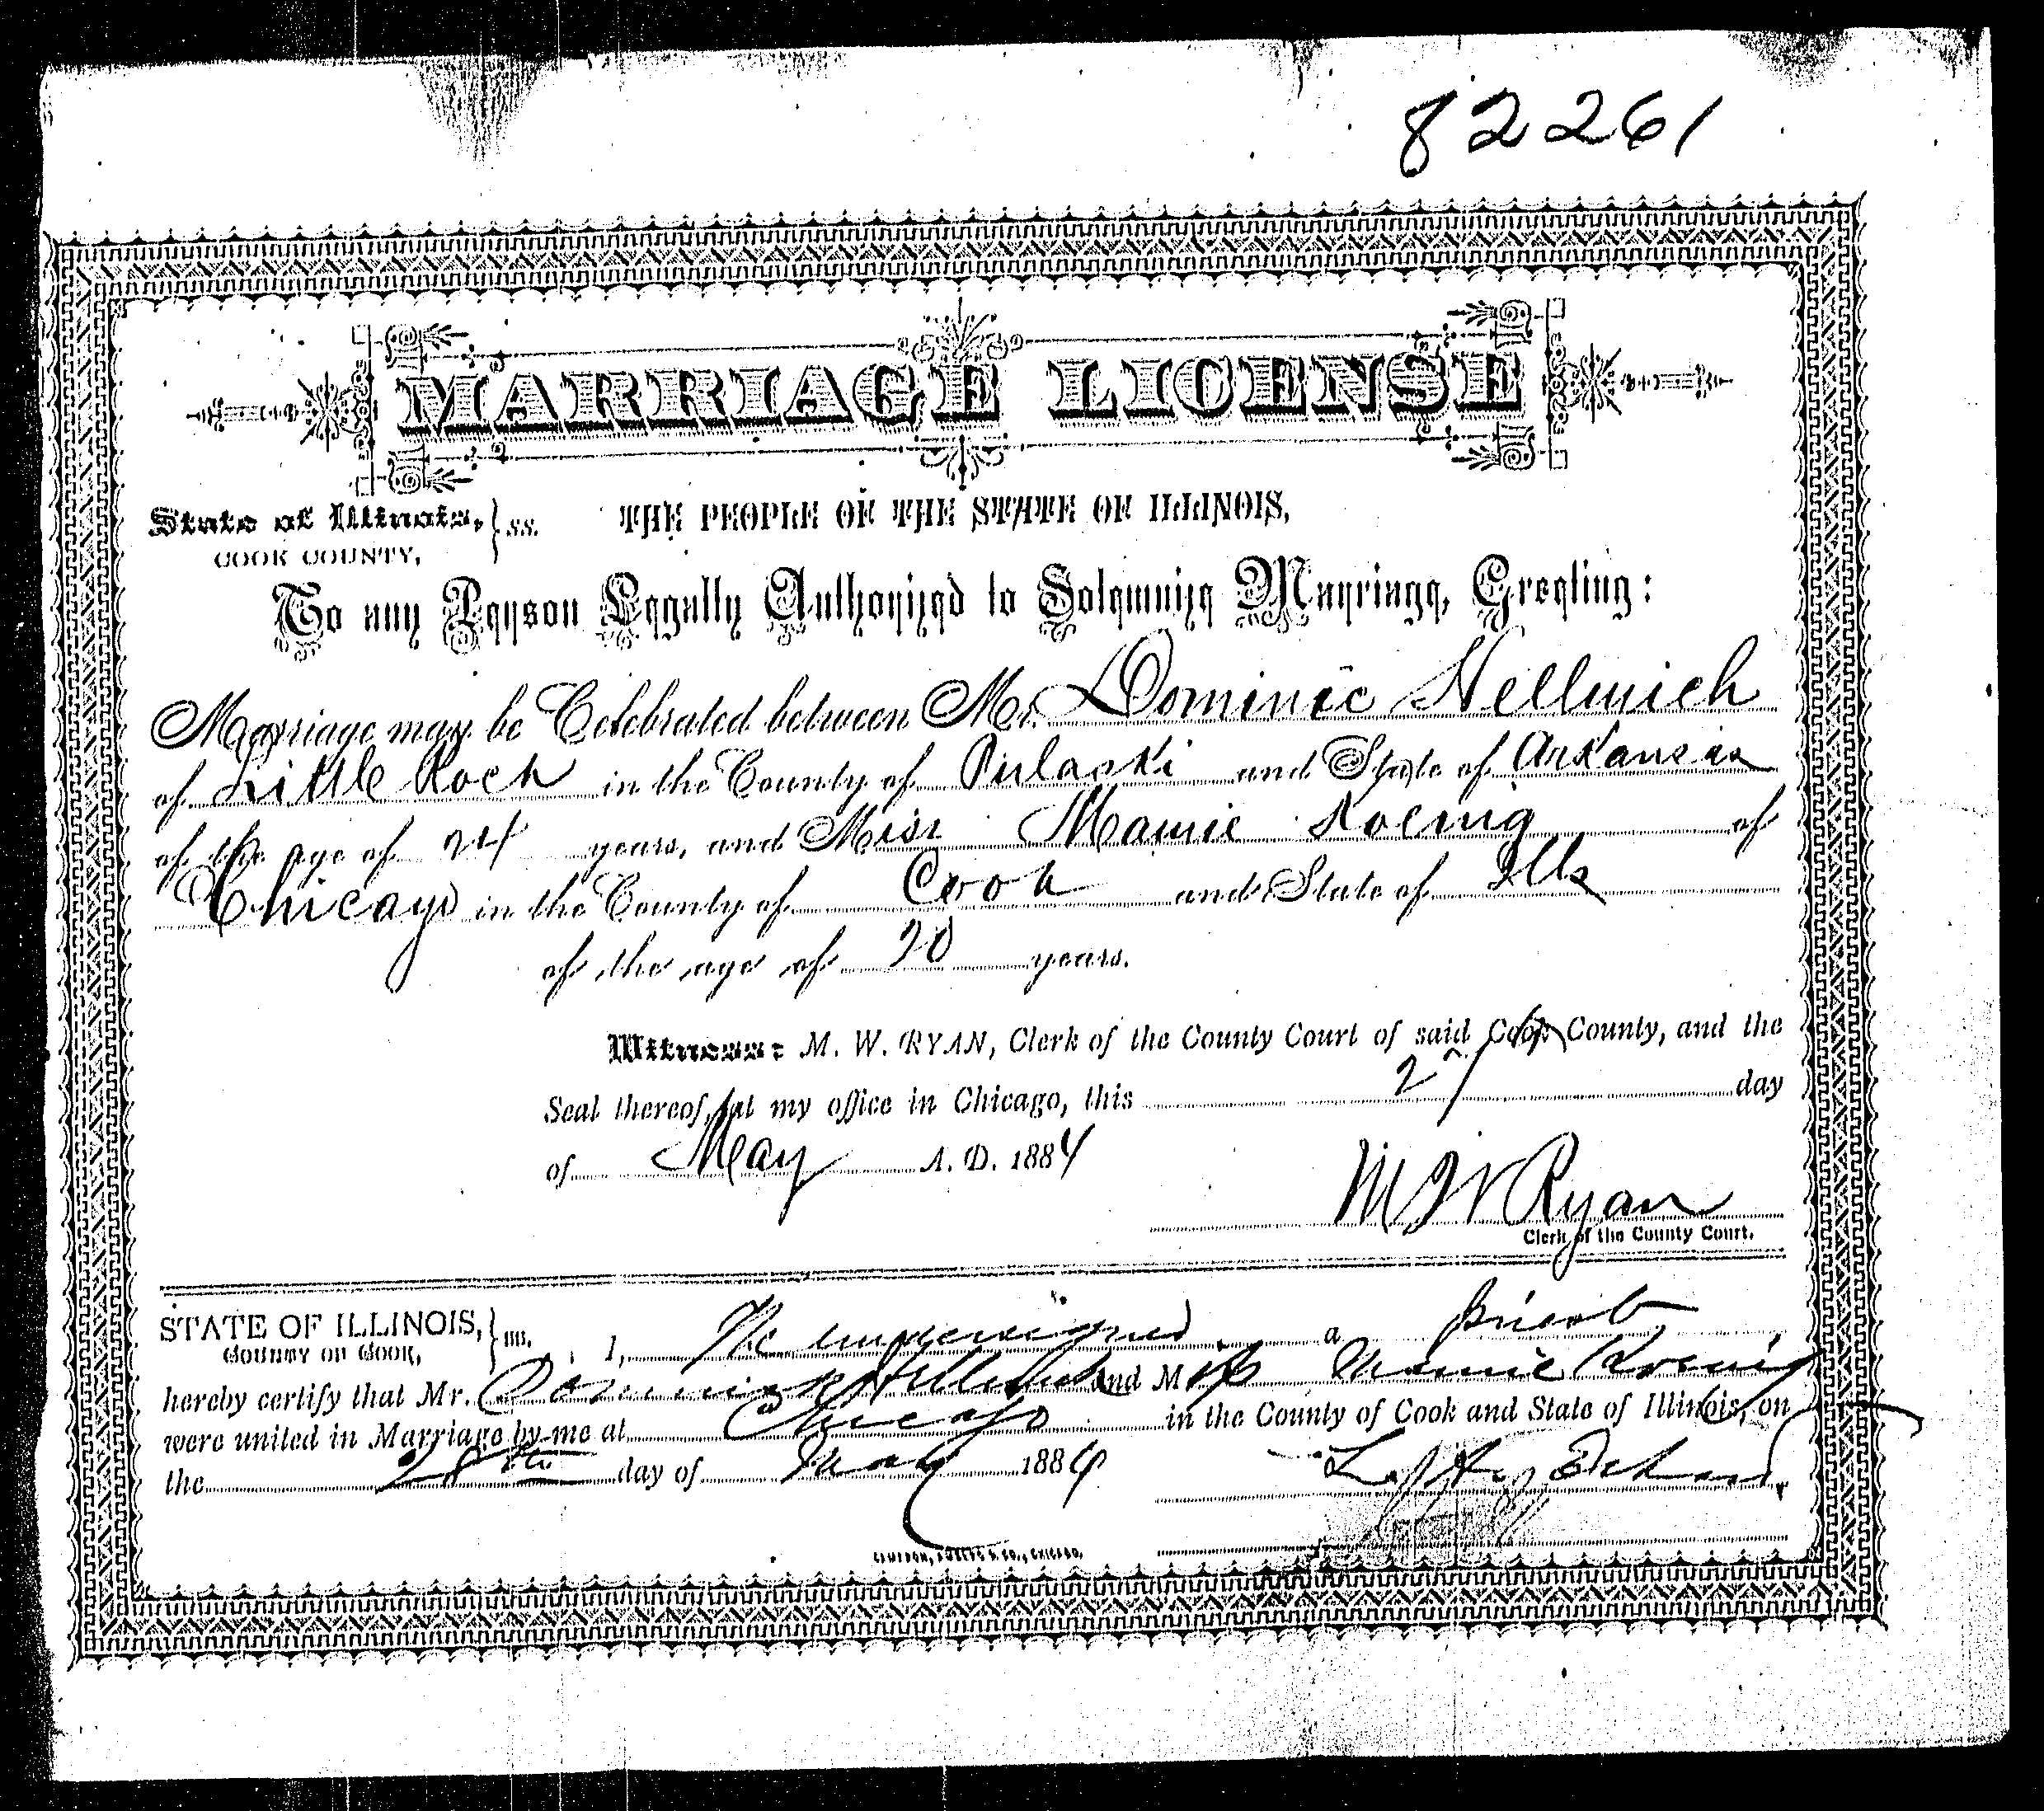 82261
MARRIAGE LICENSE
State of Illinois, } ss. THE PEOPLE OF THE STATE OF ILLINOIS,
COOK COUNTY,
To any Person Legally Authorized to Solemnize Marriage, Greeting:
Marriage may be Celebrated between Mr. Dominic Hellwich
of Little Rock in the County of Pulaski and State of Arkansas
of the age of 24 years, and Miss Mamie Koenig of
Chicago in the County of Cook and State of Ills
of the age of 20 years.
Witness: M. W. RYAN, Clerk of the County Court of said Cook County, and the
Seal thereof, at my office in Chicago, this 27th day
of May A. D. 1884
M W Ryan
Clerk of the County Court.
STATE OF ILLINOIS, } ss. I, the undersigned a priest
COUNTY OF COOK,
hereby certify that Mr. Dominick Hellwich and Miss Mamie Koenig
were united in Marriage by me at Chicago in the County of Cook and State of Illinois, on
the 28th day of May 1884
CAMERON, AMBERG & CO., CHICAGO.